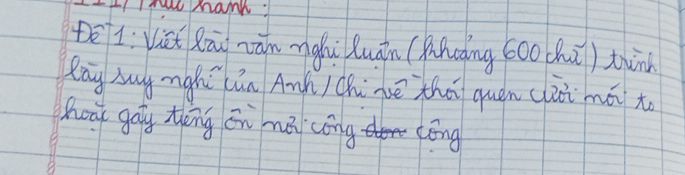 III/ Thực hành:
Đề 1: Viết bài văn nghị luận (khoảng 600 chữ) trình
bày suy nghĩ của Anh/Chị về thói quen cười nói to
hoặc gây tiếng ồn nơi công cộng